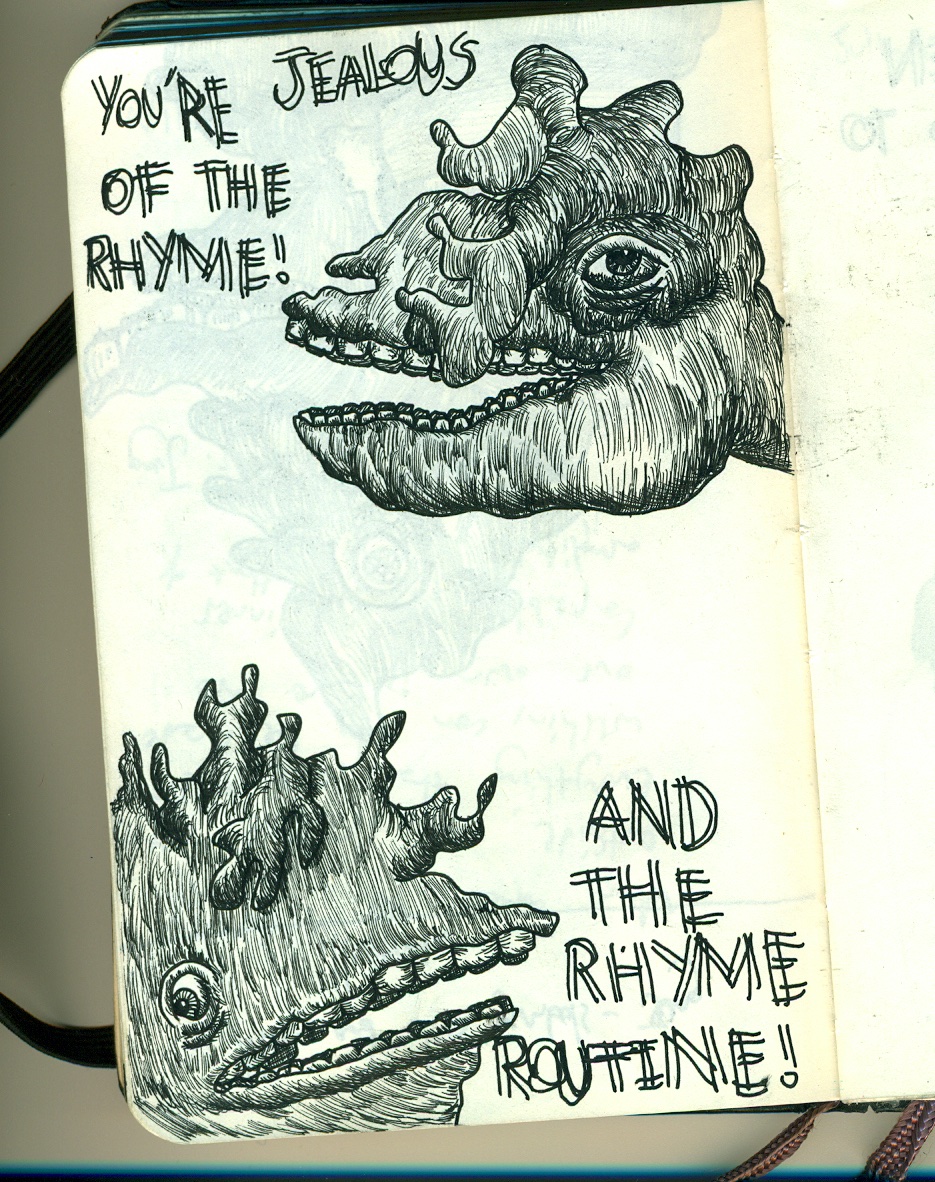 YOU'RE JEALOUS
OF THE
RHYME!
AND
THE
RHYME
ROUTINE!